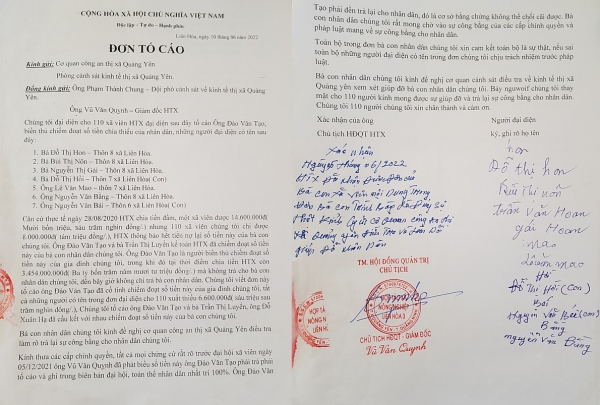 CỘNG HÒA XÃ HỘI CHỦ NGHĨA VIỆT NAM
Độc lập – Tự do – Hạnh phúc
Liên Hòa, ngày 10 tháng 06 năm 2022
ĐƠN TỐ CÁO
Kính gửi: Cơ quan công an thị xã Quảng Yên
Phòng cảnh sát kinh tế thị xã Quảng Yên.
Đồng kính gửi: Ông Phạm Thành Chung – Đội phó cảnh sát về kinh tế thị xã Quảng
Yên.
Ông Vũ Văn Quynh – Giám đốc HTX
Chúng tôi đại diện cho 110 xã viên HTX đại diện sau đây tố cáo Ông Đào Văn Tạo,
biển thủ chiếm đoạt số tiền chia thiếu của nhân dân, những người đại diện có tên sau
đây:
1. Bà Đỗ Thị Hon – Thôn 8 xã Liên Hòa.
2. Bà Bùi Thị Nôn – Thôn 8 xã Liên Hòa.
3. Bà Nguyễn Thị Gái – Thôn 8 xã Liên Hòa.
4. Bà Đỗ Thị Hồi – Thôn 7 xã Liên Hòa( Con)
5. Ông Lê Văn Mao – thôn 7 xã Liên Hòa.
6. Ông Nguyễn Văn Bằng – Thôn 8 xã Liên Hòa.
7. Ông Nguyễn Văn Bái – Thôn 8 xã Liên Hòa( Con)
Căn cứ thực tế ngày 28/08/2020 HTX chia tiền đầm, một xã viên được 14.600.000đ(
Mười bốn triệu, sáu trăm nghìn đồng/.) nhưng 110 xã viên chúng tôi chỉ được
8.000.000đ( tám triệu đồng/.). HTX thông báo hết tiền nợ lại số tiền trên của bà con
chúng tôi. Ông Đào Văn Tạo và bà Trần Thị Luyên kế toán HTX đã chiếm đoạt số tiền
này của bà con nhân dân chúng tôi. Ông Đào Văn Tạo là người biển thủ chiếm đoạt
số tiền này của gia đình chúng tôi, trong khi đó tại thời điểm chia tiền HTX còn
3.454.000.000đ( Ba tỷ bốn trăm năm mươi tư triệu đồng/.) mà không trả cho bà con
nhân dân chúng tôi, đến bây giờ không chi trả bà con nhân dân. Chúng tôi viết đơn này
tố cáo ông Đào Văn Tạo đã cố tình chiếm đoạt số tiền này của gia đình chúng tôi, tất
cả những người có tên trong đơn đại diện cho 110 xuất thiếu 6.600.000đ( sáu triệu sáu
trăm nghìn đồng/.), Chúng tôi tố cáo ông Đào Văn Tạo và bà Trần Thị Luyên, ông Đỗ
Xuân Uạ đã cấu kết với nhau chiếm đoạt số tiền này của bà con chúng tôi.
Bà con nhân dân chúng tôi kính đề nghị cơ quan công an thị xã Quảng Yên điều tra
làm rõ trả lại sự công bằng cho nhân dân chúng tôi.
Kính thưa các cấp chính quyền, tất cả mọi chứng cứ rất rõ trước đại hội xã viên ngày
05/12/2021 ông Vũ Văn Quynh đã phát biểu số tiền này ông Đào Văn Tạo phải trả phải
tố cáo và ghi trong biên bản đại hội, toàn thể nhân dân nhất trí 100%. Ông Đào Văn
Tạo phải đền trả lại cho nhân dân, đó là cơ sở bằng chứng không thể chối cãi được. Bà
con nhân dân chúng tôi rất mong chờ vào sự công bằng của các cấp chính quyền và
pháp luật mang về sự công bằng cho nhân dân.
Toàn bộ trong đơn bà con nhân dân chúng tôi xin cam kết toàn bộ là sự thật, nếu sai
toàn bộ những người đại diện có tên trong đơn chúng tôi chịu trách nhiệm trước pháp
luật.
Bà con nhân dân chúng tôi kính đề nghị cơ quan cảnh sát điều tra về kinh tế thị xã
Quảng yên xem xét giúp đỡ bà con nhân dân chúng tôi. Bảy nguwoif chúng tôi thay
mặt cho 110 người kính mong được sự giúp đỡ và trả lại sự công bằng cho nhân dân.
Chúng tôi 110 người chúng tôi xin chân thành và cảm ơn.
Xác nhận của ông
Người đại diện
Chủ tịch HĐQT HTX
ký, ghi rõ họ tên
Xác nhận
Ngày tháng 06/2022
HTX Đã nhận được đơn của
Hon
Đỗ thị hon
Bùi Thị nôn
Trần Văn Hoan
gái Hoan
mao
Lê văn mao
Hồi
Đỗ Thị Hồi (Con)
Bái
Nguyễn Văn Bái (con)
Bằng
nguyễn Văn Bằng
TM. HỘI ĐỒNG QUẢN TRỊ
CHỦ TỊCH
CHỦ TỊCH HĐQT - GIÁM ĐỐC
Vũ Văn Quynh